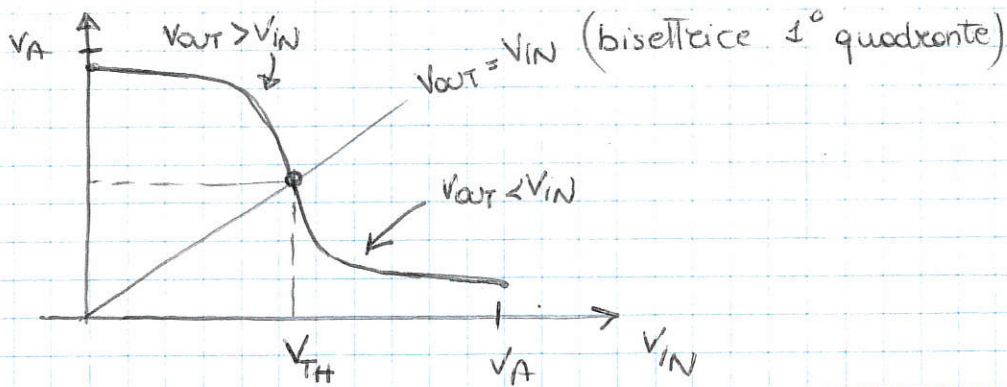 VA
VOUT > VIN
VOUT = VIN (bisettrice 1° quadrante)
VOUT < VIN
VTH
VA
VIN